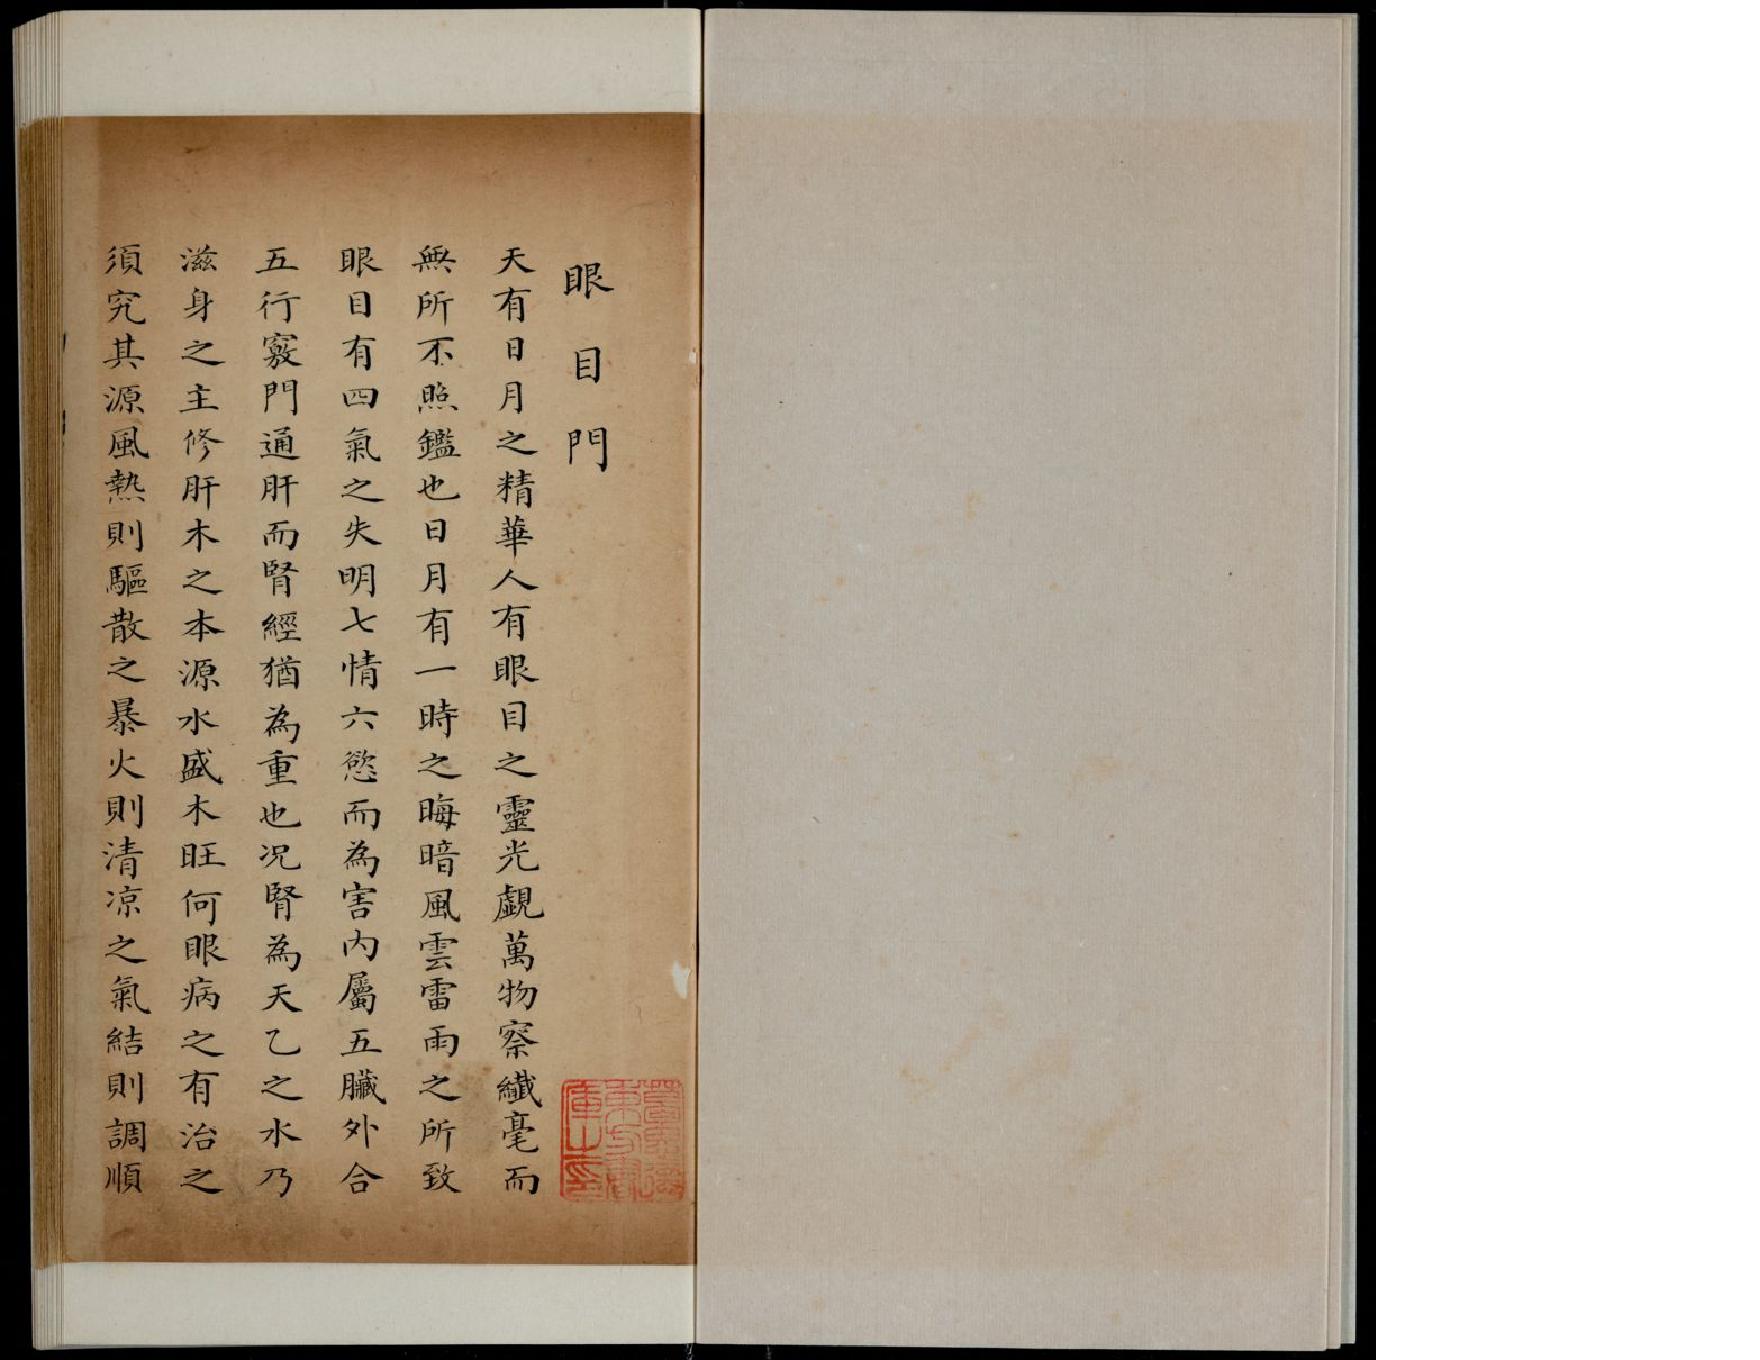 眼目門
天有日月之精華人有眼目之靈光覷萬物察纖毫而
無所不照鑑也日月有一時之晦暗風雲雷雨之所致
眼目有四氣之失明七情六慾而為害內屬五臟外合
五行竅門通肝而腎經猶為重也况腎為天乙之水乃
滋身之主修肝木之本源水盛木旺何眼病之有治之
須究其源風熱則驅散之暴火則清凉之氣結則調順